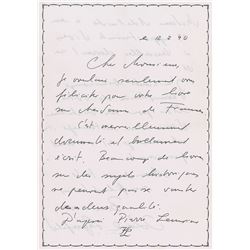 le 12.2.90
Cher Monsieur,
je voulais seulement vous
féliciter pour votre livre
sur
de France
C'est merveilleusement
documenté et brillamment
écrit. Beaucoup de livres
sur des sujets historiques
ne peuvent pas se vanter
des deux qualités.
Pierre